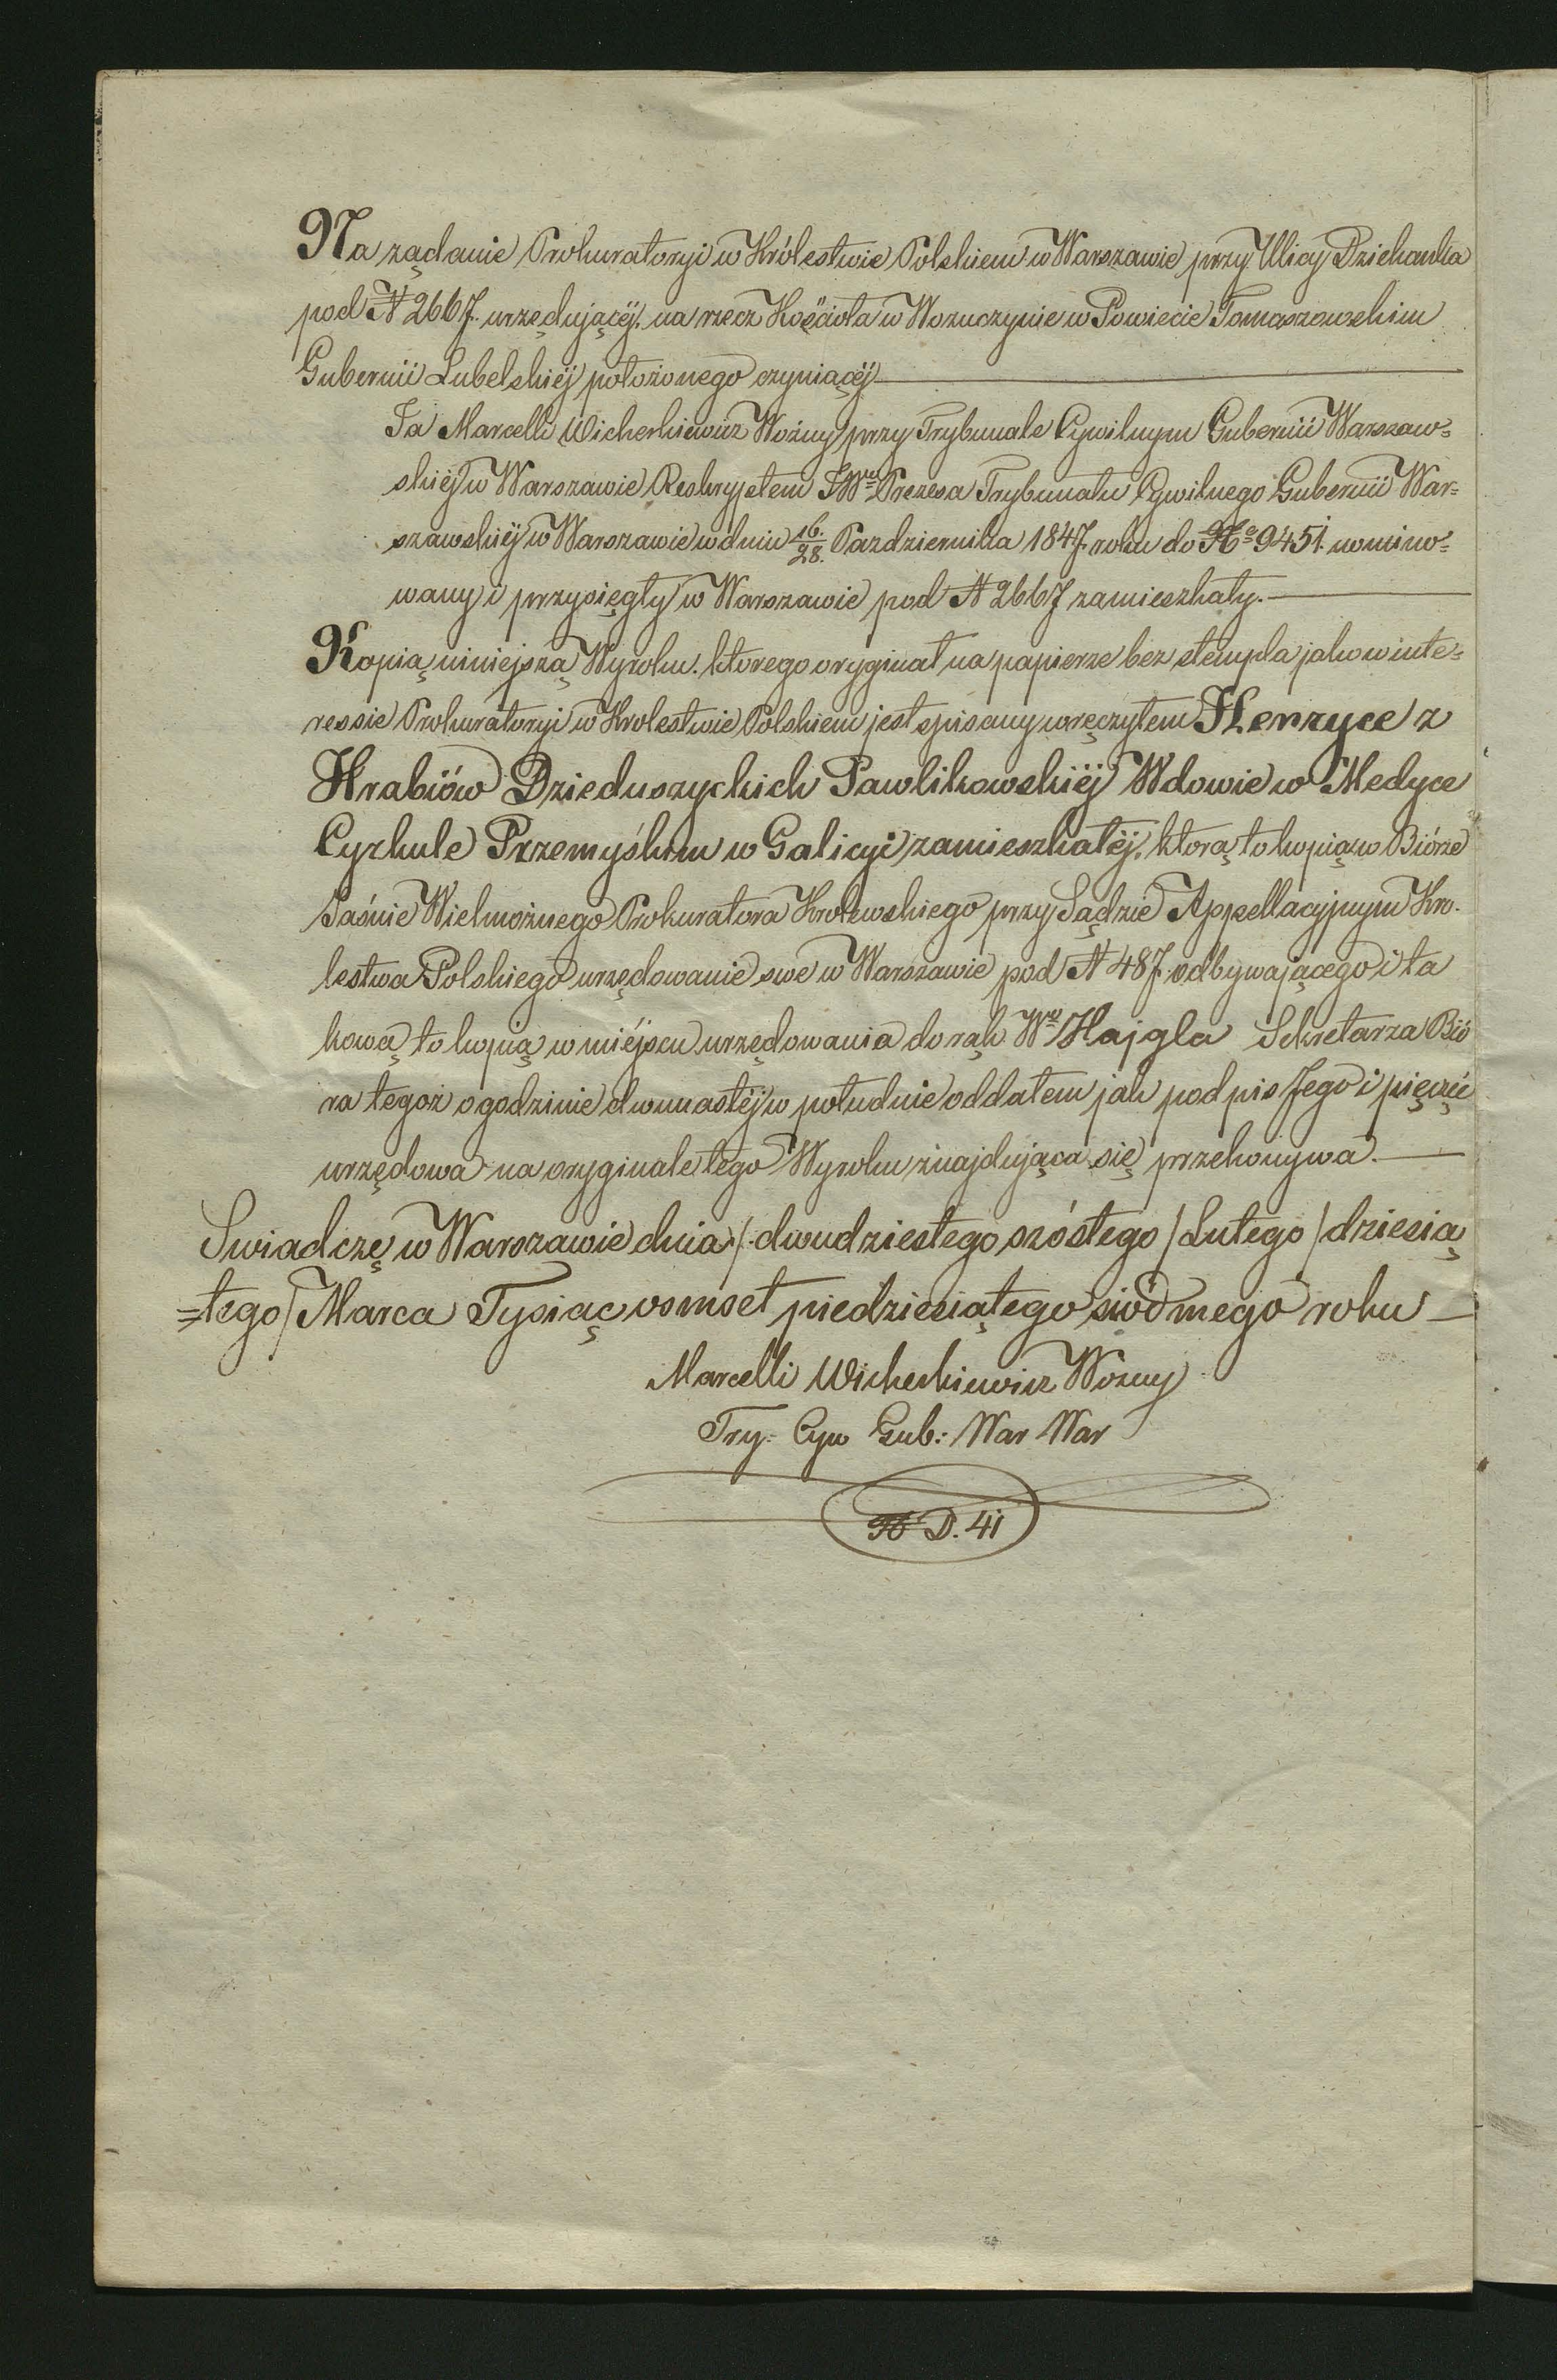 Na ządanie Prokuratoryi w Królestwie Polskiem w Warszawie przy Ulicy Dziekanka
pod N 2667. urzędującéj. na rzecz Kościoła w Wozuczynie w Powiecie Tomaszowskim
Gubernii Lubelskiéj położonego czyniącéj
Ja Marcelli Wicherkiewicz Woźny przy Trybunale Cywilnym Gubernii Warszaw=
skiéj w Warszawie Reskryptem JWgo Prezesa Trybunału Cywilnego Gubernii War=
szawskiéj w Warszawie w dniu 16./28. Pazdziernika 1847. roku do No 9451. nomino=
wany i przysięgły w Warszawie pod N 2667 zamieszkały.
Kopią niniejszą Wyroku. ktorego oryginał na papierze bez stempla jako w inte=
ressie Prokuratoryi w Krolestwie Polskiem jest spisany wręczyłem Henryce z
Hrabiów Dzieduszyckich Pawlikowskiéj Wdowie w Medyce
Cyrkule Przemyśkim w Galicyi zamieszkałéj, ktorą to kopią w Biórze
Jaśnie Wielmożnego Prokuratora Krolewskiego przy Sądzie Appellacyjnym Kro.
lestwa Polskiego urzędowanie swe w Warszawie pod N 487. odbywającego i ta
kową to kopią w miéjscu urzędowania do rąk Wgo Hajgla Sekretarza Bió
ra tegoż o godzinie dwunastéj w południe oddałem jak podpis Jego i pięczęć
urzędowa na oryginale tego Wyroku znajdująca się przekonywa.
Swiadczę w Warszawie dnia /. dwudziestego szóstego / Lutego / dziesią
=tego / Marca Tysiąc osmset piedziesiątego siódmego roku
Marcelli Wicherkiewicz Woźny
Try: Cyw Gub: War War
No D. 41